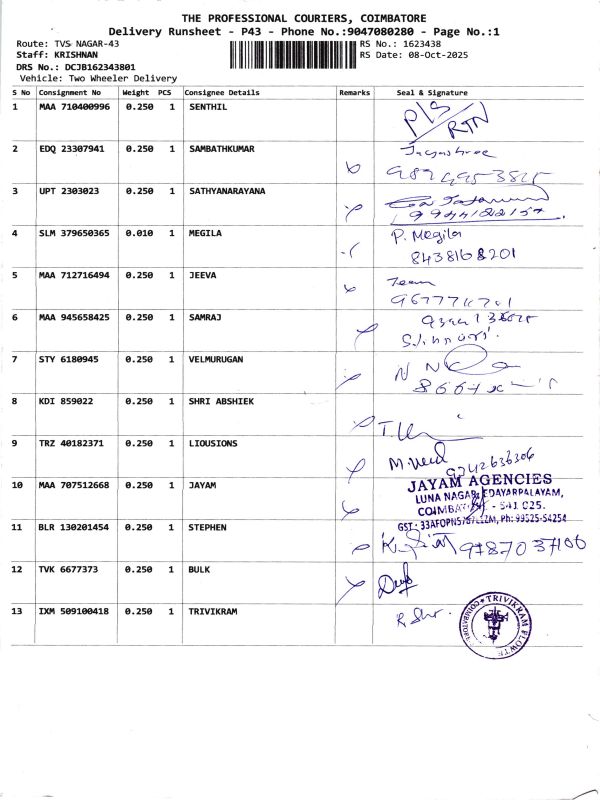 THE PROFESSIONAL COURIERS, COIMBATORE
Delivery Runsheet - P43 - Phone No.:9047080280 - Page No.:1
Route: TVS NAGAR-43
RS No.: 1623438
Staff: KRISHNAN
RS Date: 08-Oct-2025
DRS No.: DCJB162343801
Vehicle: Two Wheeler Delivery
S No Consignment No Weight PCS Consignee Details Remarks Seal & Signature
1 MAA 710400996 0.250 1 SENTHIL
RTN
2 EDQ 23307941 0.250 1 SAMBATHKUMAR Jayashree
3 UPT 2303023 0.250 1 SATHYANARAYANA
4 SLM 379650365 0.010 1 MEGILA P. Megila
8438168201
5 MAA 712716494 0.250 1 JEEVA Team
6 MAA 945658425 0.250 1 SAMRAJ
7 STY 6180945 0.250 1 VELMURUGAN
8 KDI 859022 0.250 1 SHRI ABSHIEK
9 TRZ 40182371 0.250 1 LIOUSIONS
9742636306
10 MAA 707512668 0.250 1 JAYAM JAYAM AGENCIES
LUNA NAGAR, EDAYARPALAYAM,
COIMBATORE - 641 025.
11 BLR 130201454 0.250 1 STEPHEN
9787037106
12 TVK 6677373 0.250 1 BULK
13 IXM 509100418 0.250 1 TRIVIKRAM
TRIVIKRAM